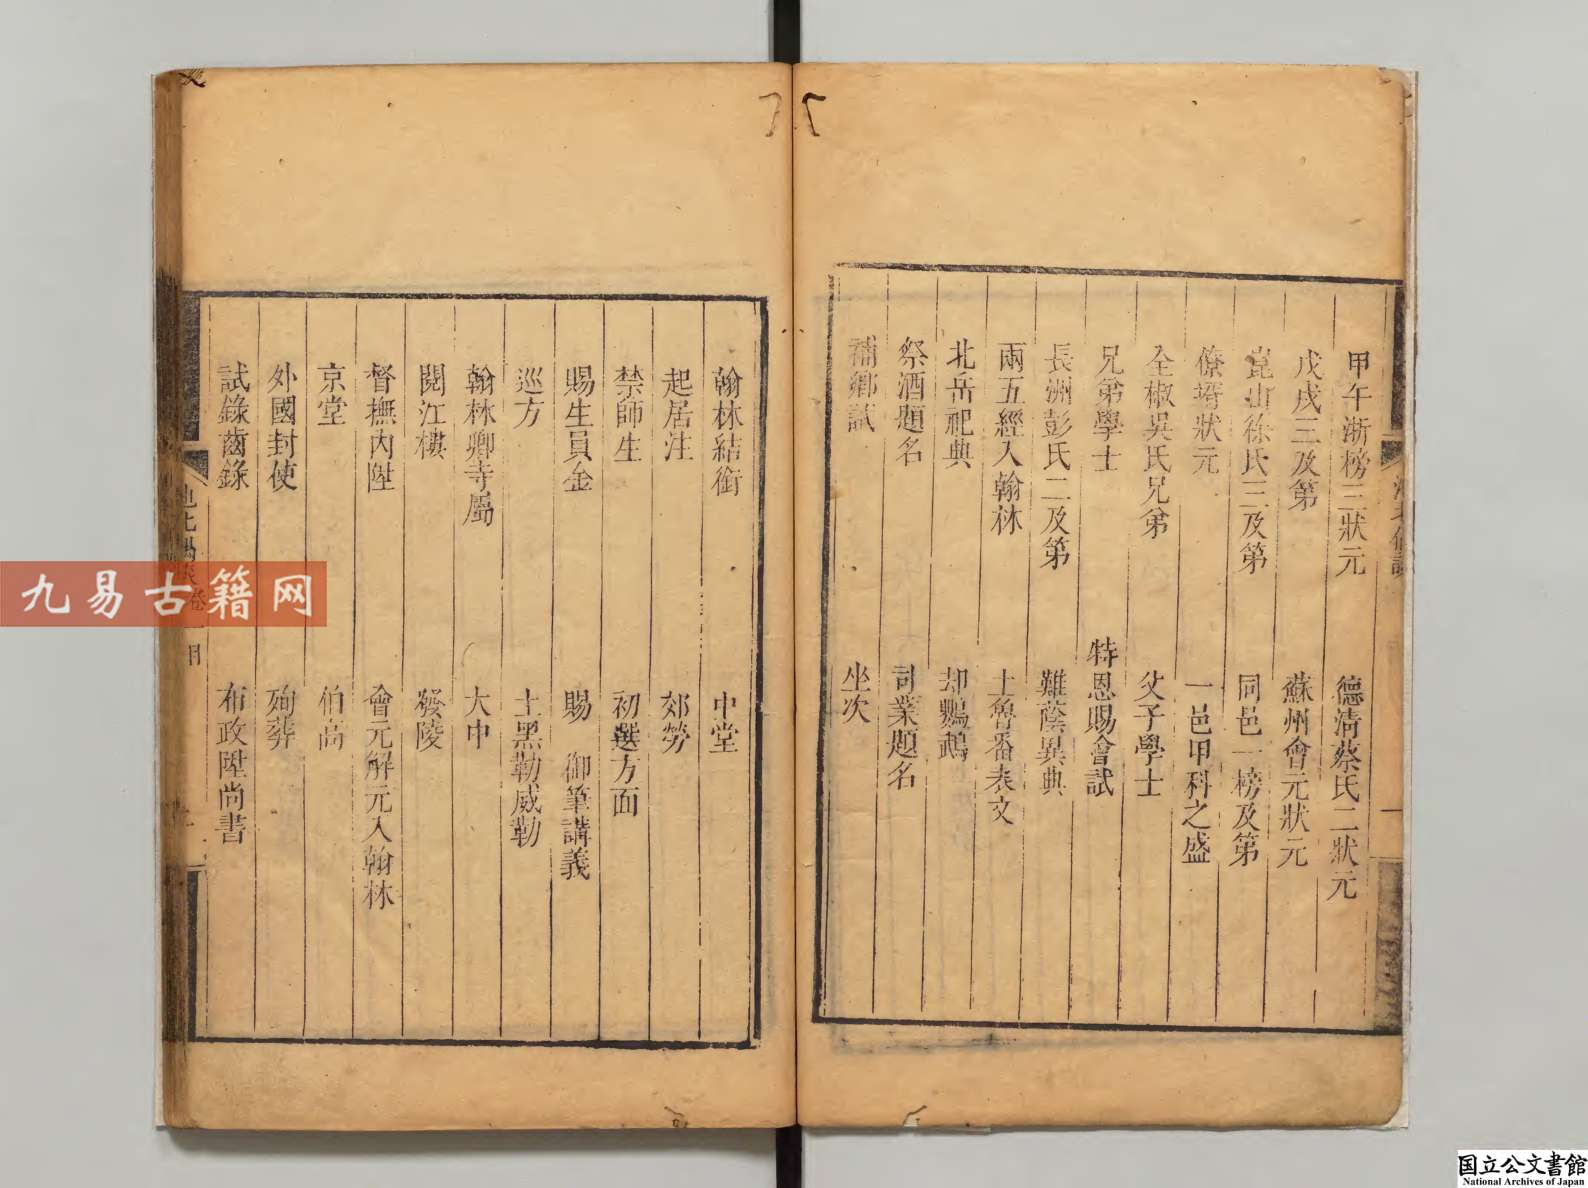 甲午浙榜三狀元 德清蔡氏二狀元
戊戌三及第 蘇州會元狀元
崑山徐氏三及第 同邑一榜及第
僚壻狀元 一邑甲科之盛
全椒吳氏兄弟 父子學士
兄弟學士 特恩賜會試
長洲彭氏二及第 難蔭異典
兩五經入翰林 土魯番表文
北岳祀典 却鸚鵡
祭酒題名 司業題名
補鄉試 坐次
翰林結銜 中堂
起居注 郊勞
禁師生 初選方面
賜生員金 賜 御筆講義
巡方 土黑勒威勒
翰林卿寺屬 大中
閱江樓 發陵
督撫內陞 會元解元入翰林
京堂 伯啇
外國封使 殉葬
試錄齒錄 布政陞尚書
九易古籍网
国立公文書館
National Archives of Japan